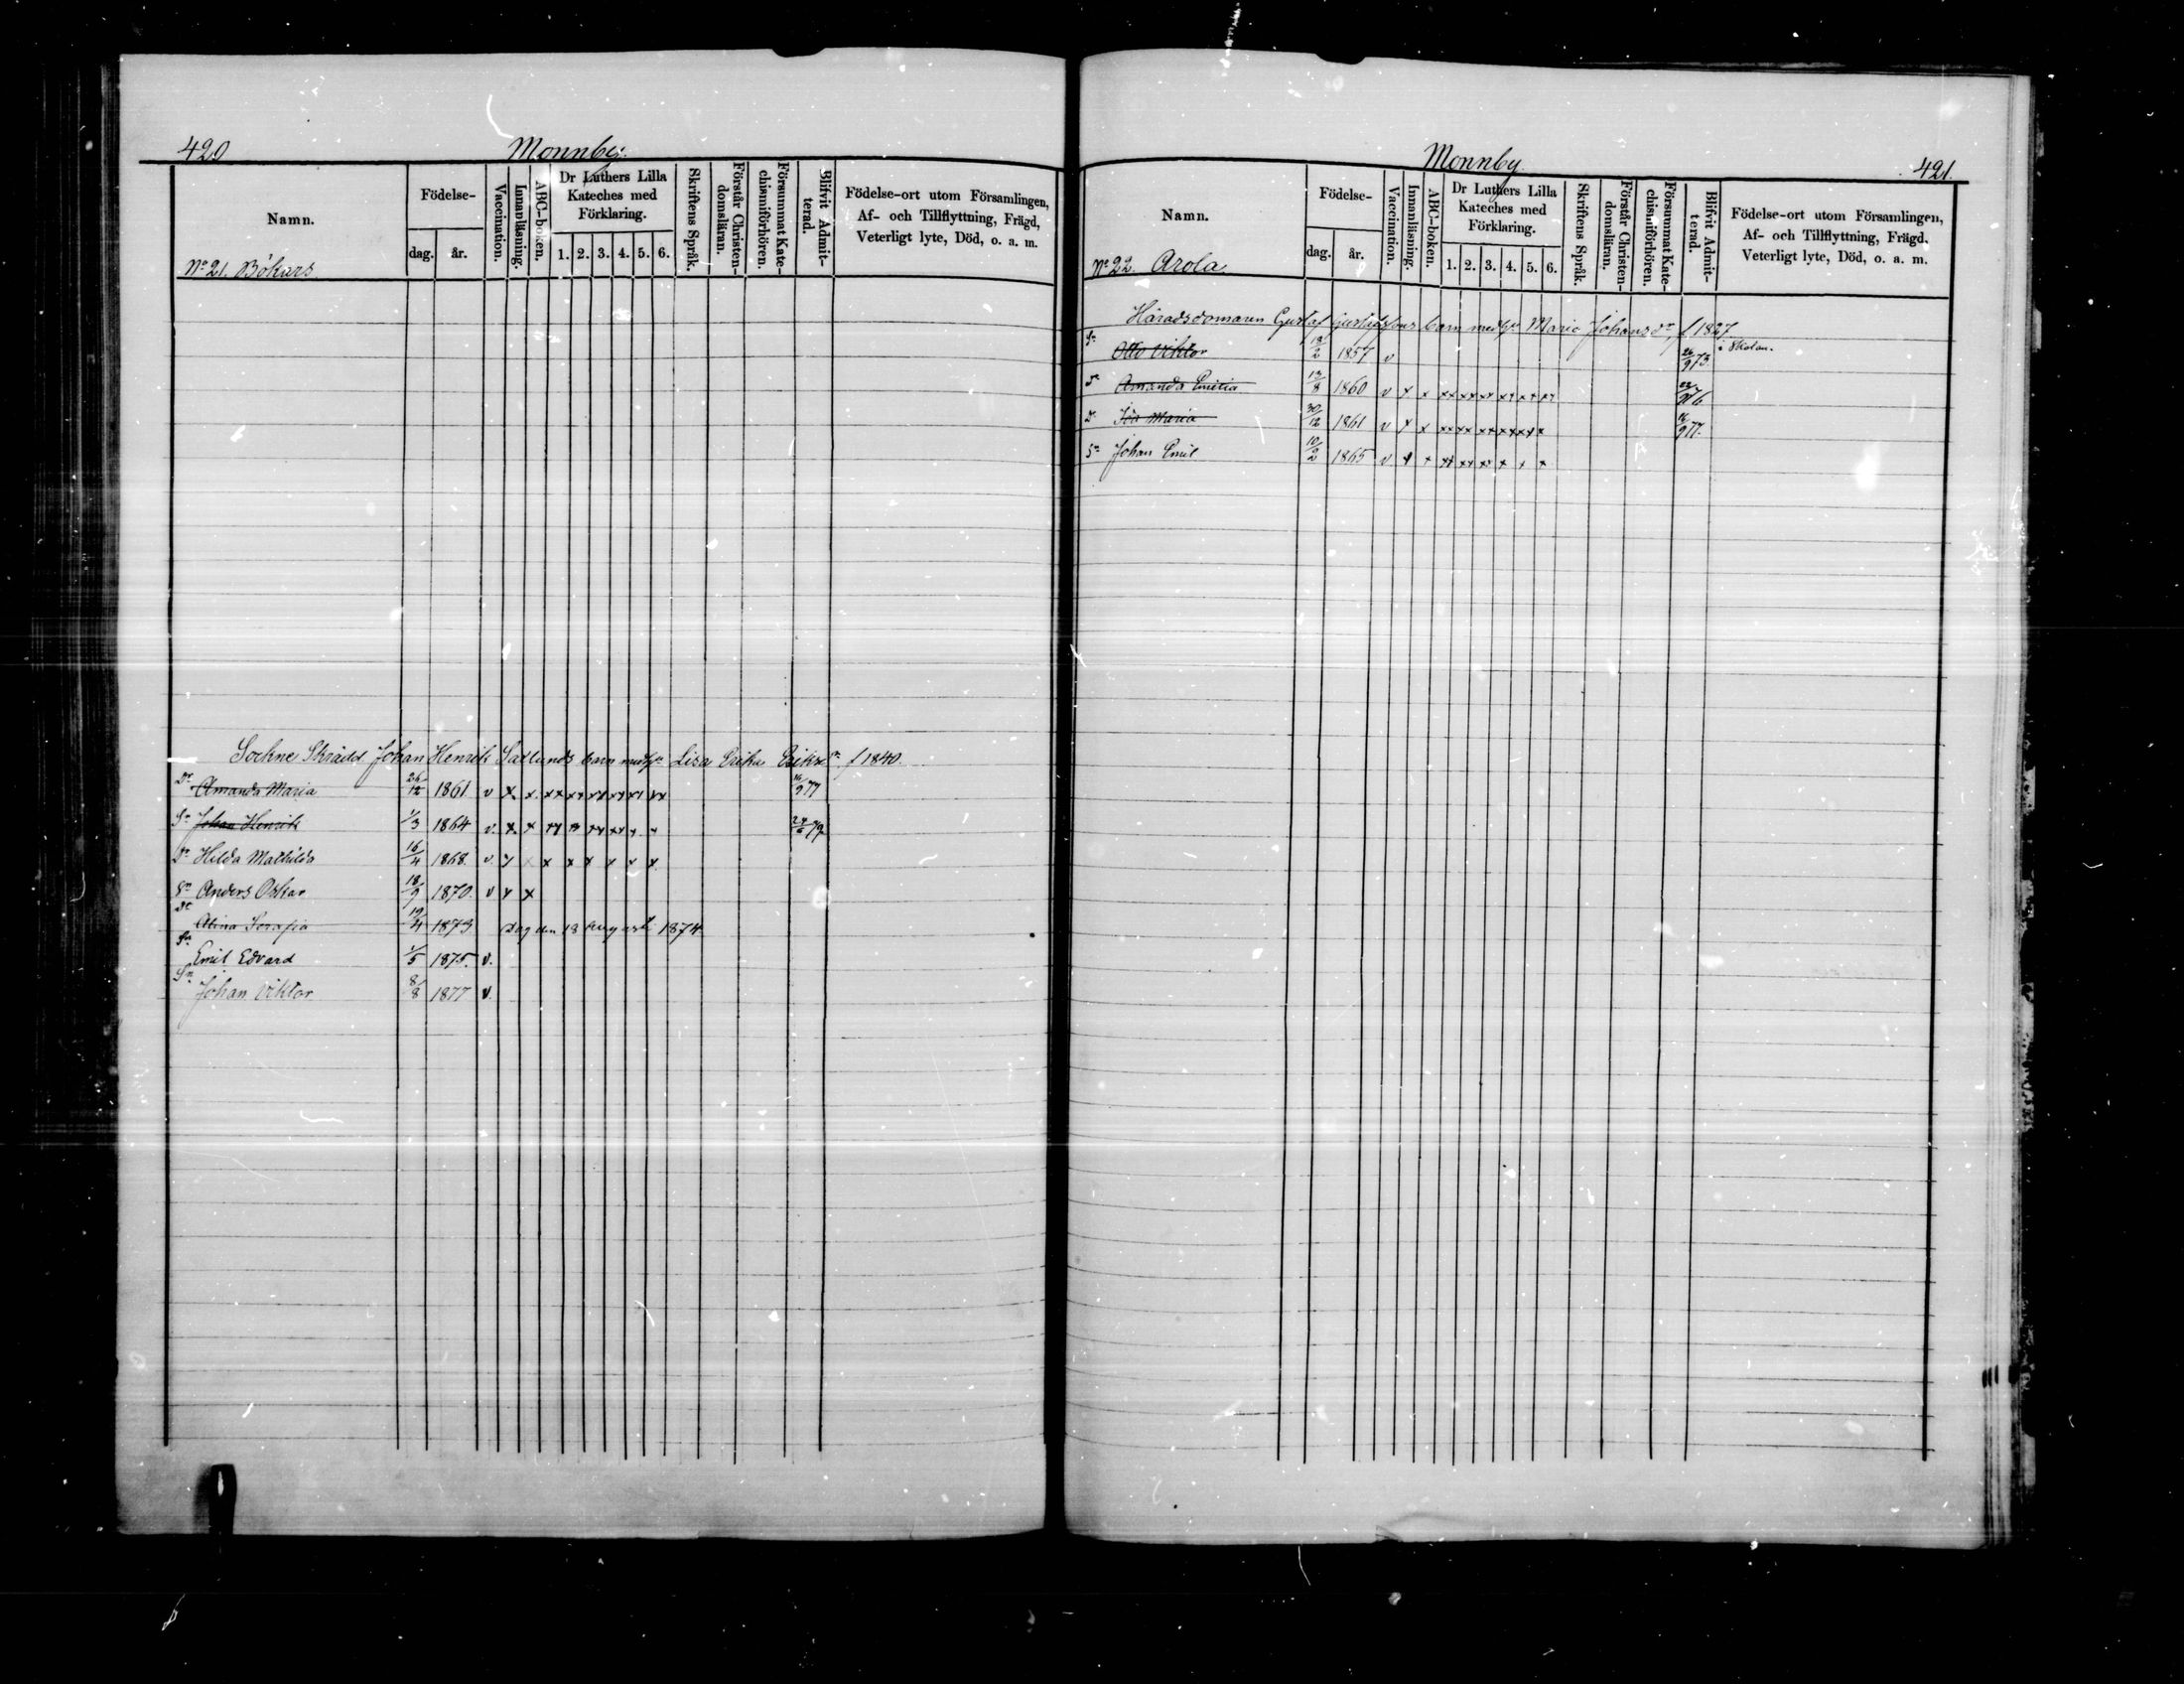 420 Monnby.
Namn. Födelse- dag. år. Vaccination. Innanläsning. ABC-boken. Dr Luthers Lilla Kateches med Förklaring. 1. 2. 3. 4. 5. 6. Skriftens Språk. Förstår Christen-domsläran. Försummat Kate-chismiförhören. Blifvit Admit-terad. Födelse-ort utom Församlingen, Af- och Tillflyttning, Frägd, Veterligt lyte, Död, o. a. m.
No 21. Bökars
Sockne Skrädd Johan Henrik Satlunds barn med hu Lisa Erika Eriksdr f 1840.
Dr Amanda Maria 26/12 1861 v x x xx xx xx xx xx xx 16/9 77
Sn Johan Henrik 1/3 1864 v. x x xx xx xx xx x x 24/ 79
Dr Hilda Mathilda 16/4 1868. v. x x x x x x x x
Sn Anders Oskar 18/9 1870. v x x
Dr Alina Serafia 19/4 1873 dog den 18 augusti 1874
Sn Emil Edvard 1/5 1875. v.
Sn Johan Viktor 8/8 1877 v.
Monnby 421.
Namn. Födelse- dag. år. Vaccination. Innanläsning. ABC-boken. Dr Luthers Lilla Kateches med Förklaring. 1. 2. 3. 4. 5. 6. Skriftens Språk. Förstår Christen-domsläran. Försummat Kate-chismiförhören. Blifvit Admit-terad. Födelse-ort utom Församlingen, Af- och Tillflyttning, Frägd, Veterligt lyte, Död, o. a. m.
No 22. Arola
Häradsdomaren Gustaf Gustafssons barn med hu Maria Johansdr, f 1827
Sn Otto Viktor 18/2 1857 v 26/9 73 i Skolan.
Dr Amanda Emilia 13/8 1860 v x x xx xx xx xx xx xx 22/9 76
Dr Ida Maria 30/12 1861 v x x xx xx xx xx xx x 16/9 77.
Sn Johan Emil 10/2 1865 v x x xx xx xx x x x